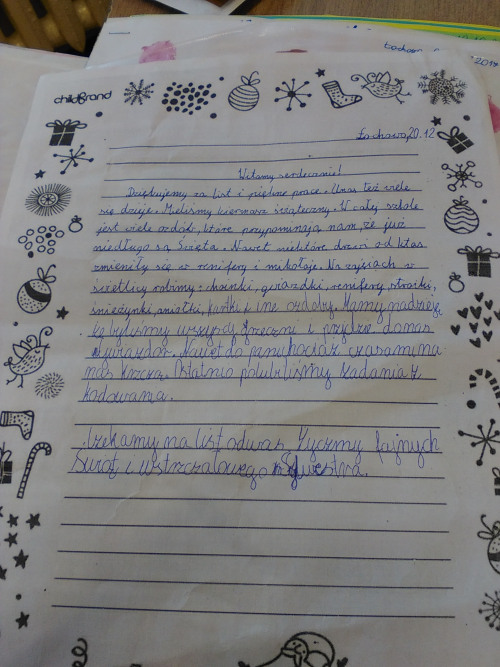 childBrand
Łochowo, 20.12
Witamy serdecznie!
Dziękujemy za list i piękne prace. U nas też wiele
się dzieje. Mieliśmy kiermasz świąteczny. W całej szkole
jest wiele ozdób, które przypominają nam, że już
niedługo są Święta. Nawet niektóre drzwi od klas
zmieniły się w renifery i mikołaje. Na zajęciach w
świetlicy robimy: choinki, gwiazdki, renifery, stroiki,
śnieżynki, aniołki, kartki i ine ozdoby. Mamy nadzieję
że byliśmy wszyscy grzeczni i przyjdzie do nas
gwiazdor. Nawet do pani chociaż czasami na
nas krzyczy. Ostatnio polubiliśmy zadania z
kodowania.
Czekamy na list od was. Życzmy fajnych
Świąt i wstrzałowego Sylwestra.